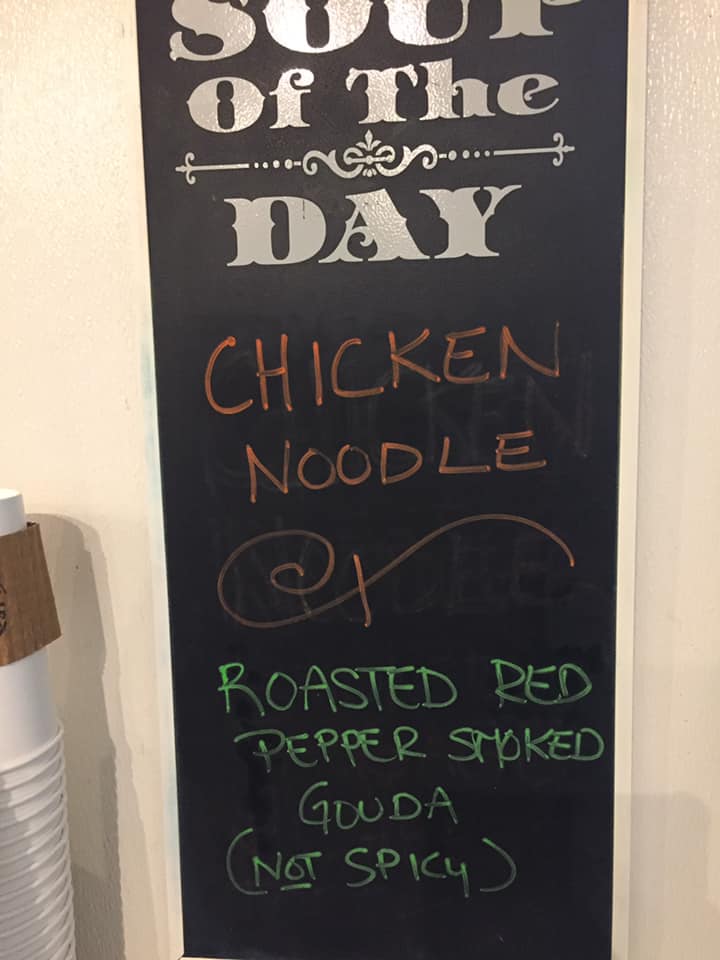 SOUP
Of The
DAY
CHICKEN
NOODLE
ROASTED RED
PEPPER SMOKED
GOUDA
(NOT SPICY)